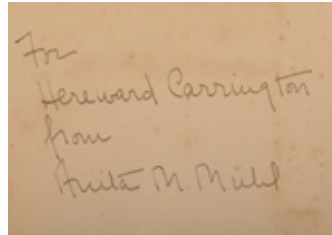 For
Hereward Carrington
from
Anita M. Mühl